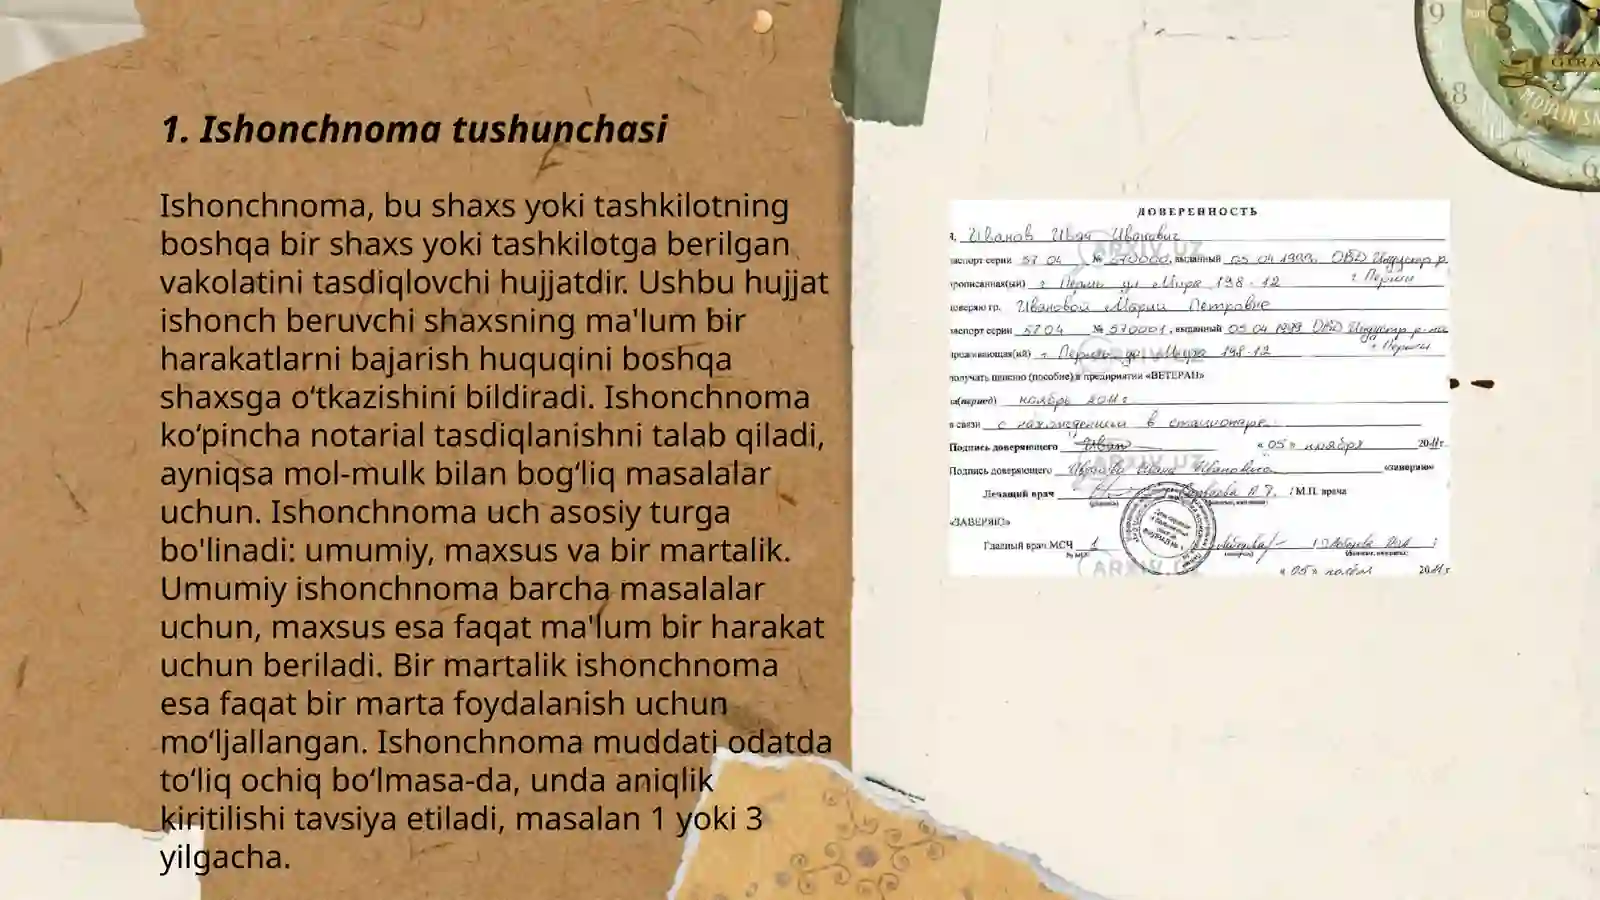 1. Ishonchnoma tushunchasi
Ishonchnoma, bu shaxs yoki tashkilotning
boshqa bir shaxs yoki tashkilotga berilgan
vakolatini tasdiqlovchi hujjatdir. Ushbu hujjat
ishonch beruvchi shaxsning ma'lum bir
harakatlarni bajarish huquqini boshqa
shaxsga o‘tkazishini bildiradi. Ishonchnoma
ko‘pincha notarial tasdiqlanishni talab qiladi,
ayniqsa mol-mulk bilan bog‘liq masalalar
uchun. Ishonchnoma uch asosiy turga
bo'linadi: umumiy, maxsus va bir martalik.
Umumiy ishonchnoma barcha masalalar
uchun, maxsus esa faqat ma'lum bir harakat
uchun beriladi. Bir martalik ishonchnoma
esa faqat bir marta foydalanish uchun
mo‘ljallangan. Ishonchnoma muddati odatda
to‘liq ochiq bo‘lmasa-da, unda aniqlik
kiritilishi tavsiya etiladi, masalan 1 yoki 3
yilgacha.
ДОВЕРЕННОСТЬ
Иванов Иван Иванович
серии 57 04 № 570000, выданный 05 04 1999. ОВД Индустр р.
г Перми
г Пермь ул Мира 198-12
гр. Ивановой Марии Петровне
серии 57 04 № 570001, выданный 05 04 1999 ОВД Индустр р-на
г Перми
г Пермь ул Мира 198-12
получать пенсию (пособие) в предприятии «ВЕТЕРАН»
ноябрь 2011 г
в связи с нахождением в стационаре
Подпись доверяющего Иван «05» ноября 2011г.
Подпись доверяющего Иванова Ивана Ивановича «заверяю»
Лечащий врач / М.П. врача
«ЗАВЕРЯЮ»
Главный врач МСЧ 1
«05» 2011г
ARXIV.UZ
9
8
6
MOULIN